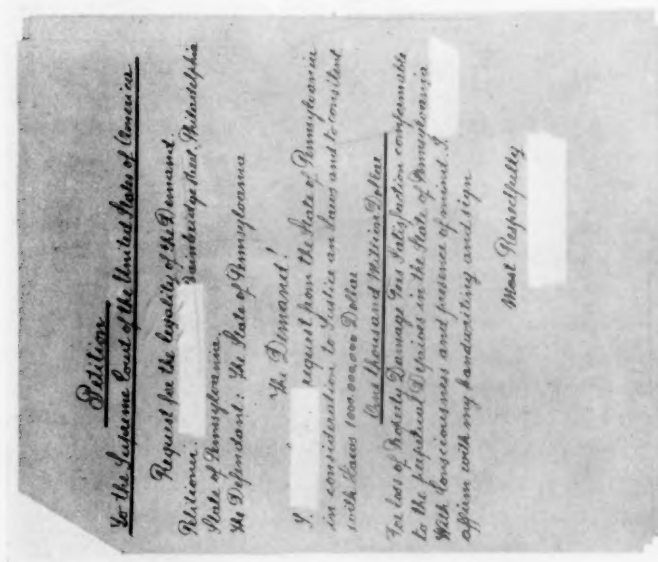 Petition
To the Supreme Court of the United States of America
Request for the legality of the Demand.
Petitioner: Bainbridge Street, Philadelphia
State of Pennsylvania,
The Defendant: The State of Pennsylvania
The Demand!
I. request from the State of Pennsylvania
in consideration to Justice an Laws and to consilent
with Laws 1000.000,000 Dollar
One thousand Million Dollar
For loss of Property Damage Fees Satisfaction conformable
to the in the State of Pennsylvania
With Consciousness and presence of mind I.
affirm with my handwriting and sign
Most Respectfully